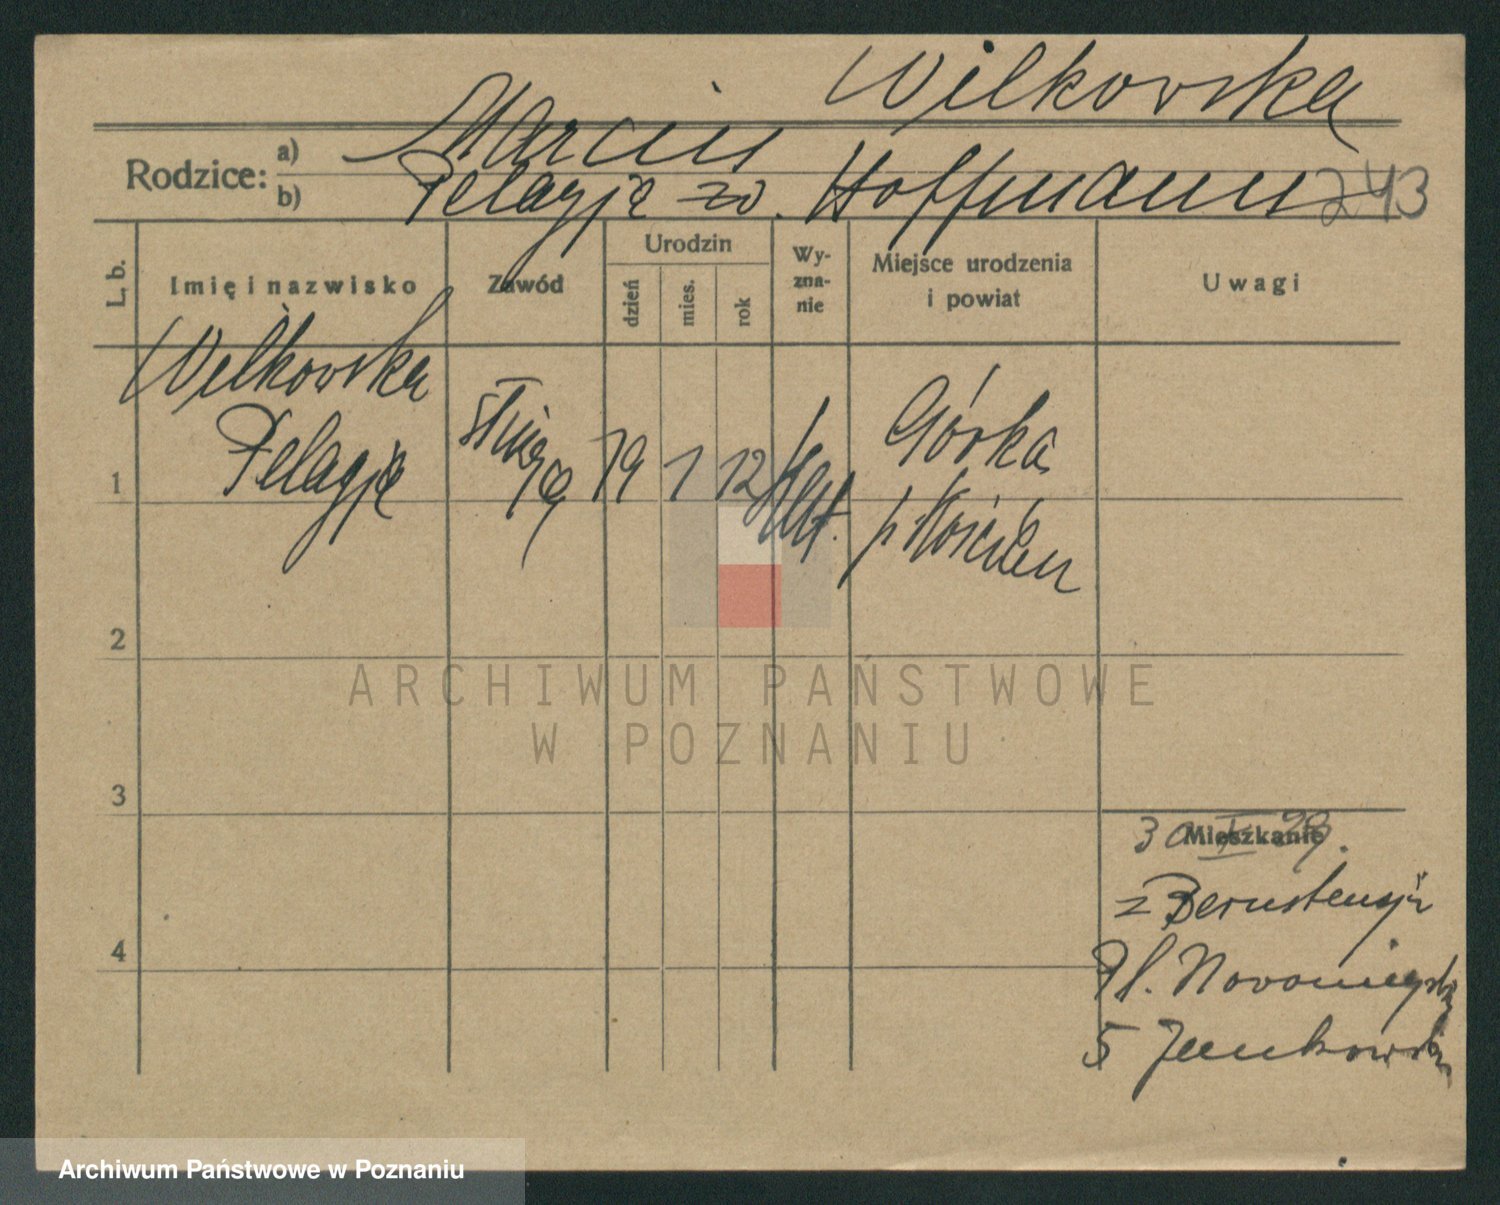 Wilkovska
Rodzice: a) Marcin
b) Pelagja zd. Hoffmann 243
L. b. Imię i nazwisko Zawód Urodzin dzień mies. rok Wy-zna-nie Miejsce urodzenia i powiat Uwagi
Wilkovska
Pelagja służąca 19 1 12 kat. Górka
1 p Kościan
2
3
Mieszkanie
29.
z
4
Pl.
5 Jankowski
ARCHIWUM PAŃSTWOWE
W POZNANIU
Archiwum Państwowe w Poznaniu